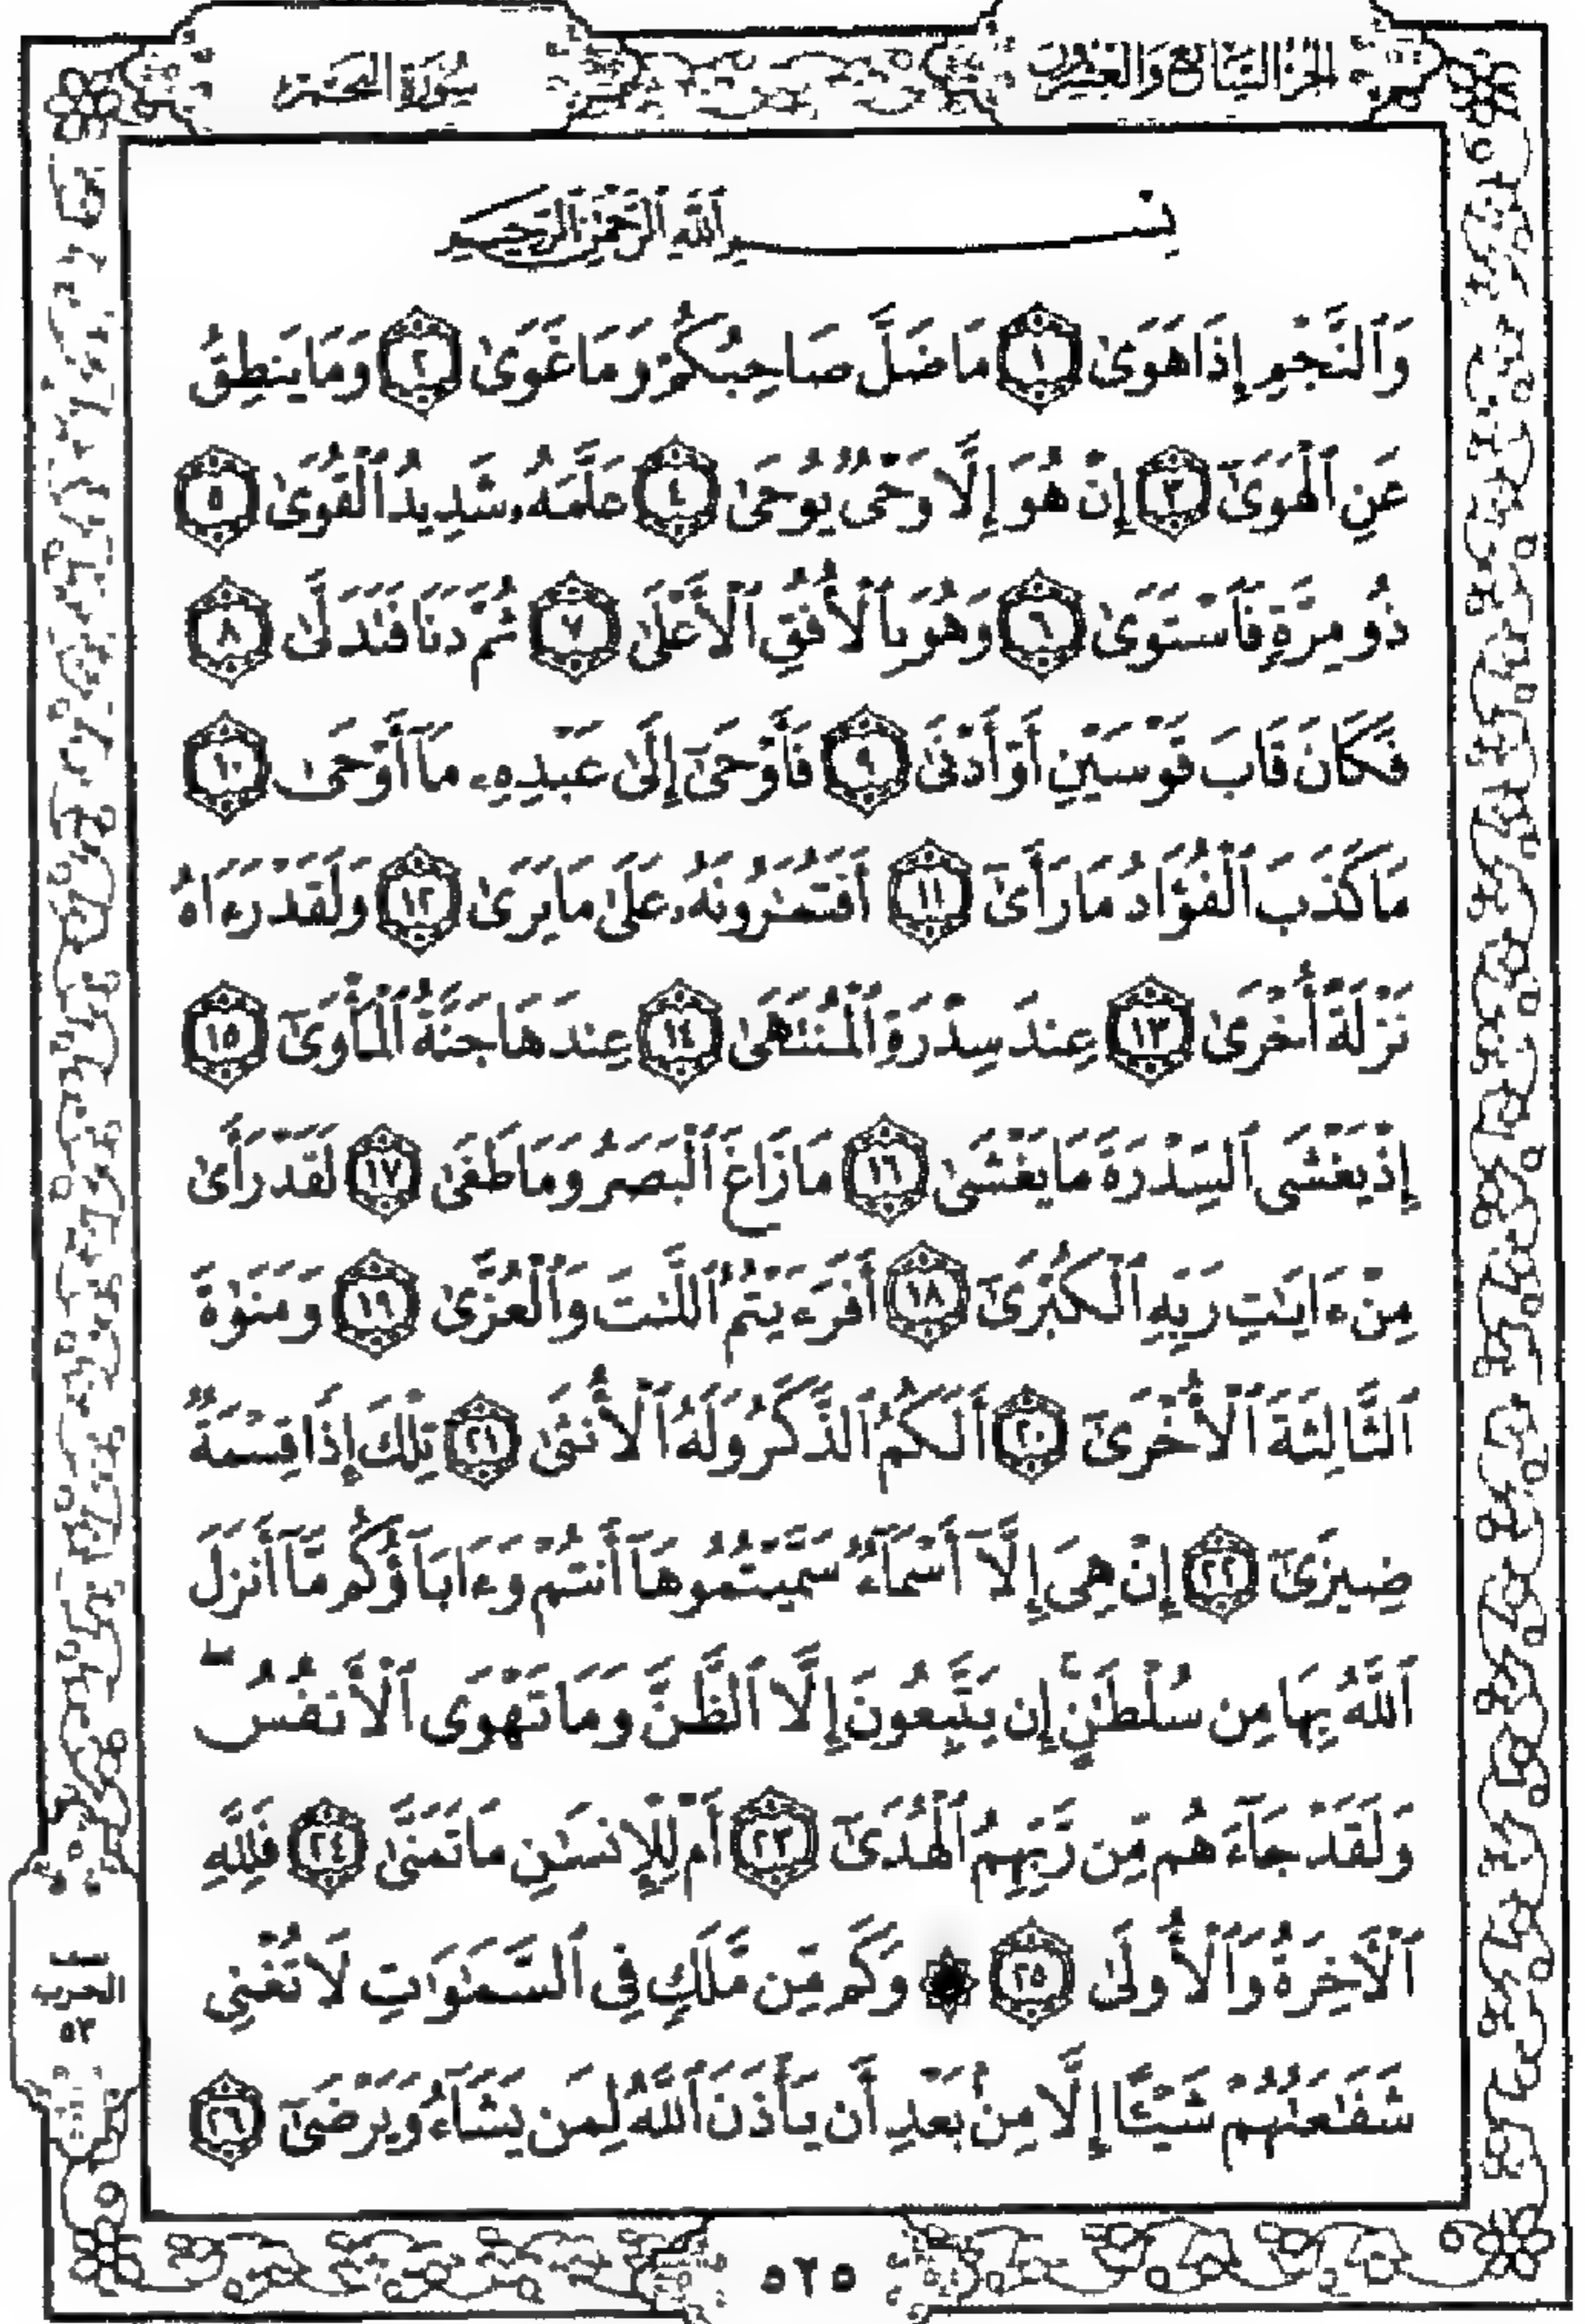 الجزء السابع والعشرون
سورة النجم
بِسْمِ ٱللَّهِ ٱلرَّحْمَٰنِ ٱلرَّحِيمِ
وَٱلنَّجْمِ إِذَا هَوَىٰ ١ مَا ضَلَّ صَاحِبُكُمْ وَمَا غَوَىٰ ٢ وَمَا يَنطِقُ
عَنِ ٱلْهَوَىٰٓ ٣ إِنْ هُوَ إِلَّا وَحْىٌ يُوحَىٰ ٤ عَلَّمَهُۥ شَدِيدُ ٱلْقُوَىٰ ٥
ذُو مِرَّةٍ فَٱسْتَوَىٰ ٦ وَهُوَ بِٱلْأُفُقِ ٱلْأَعْلَىٰ ٧ ثُمَّ دَنَا فَتَدَلَّىٰ ٨
فَكَانَ قَابَ قَوْسَيْنِ أَوْ أَدْنَىٰ ٩ فَأَوْحَىٰٓ إِلَىٰ عَبْدِهِۦ مَآ أَوْحَىٰ ١٠
مَا كَذَبَ ٱلْفُؤَادُ مَا رَأَىٰٓ ١١ أَفَتُمَٰرُونَهُۥ عَلَىٰ مَا يَرَىٰ ١٢ وَلَقَدْ رَءَاهُ
نَزْلَةً أُخْرَىٰ ١٣ عِندَ سِدْرَةِ ٱلْمُنتَهَىٰ ١٤ عِندَهَا جَنَّةُ ٱلْمَأْوَىٰٓ ١٥
إِذْ يَغْشَى ٱلسِّدْرَةَ مَا يَغْشَىٰ ١٦ مَا زَاغَ ٱلْبَصَرُ وَمَا طَغَىٰ ١٧ لَقَدْ رَأَىٰ
مِنْ ءَايَٰتِ رَبِّهِ ٱلْكُبْرَىٰٓ ١٨ أَفَرَءَيْتُمُ ٱللَّٰتَ وَٱلْعُزَّىٰ ١٩ وَمَنَوٰةَ
ٱلثَّالِثَةَ ٱلْأُخْرَىٰٓ ٢٠ أَلَكُمُ ٱلذَّكَرُ وَلَهُ ٱلْأُنثَىٰ ٢١ تِلْكَ إِذًا قِسْمَةٌ
ضِيزَىٰٓ ٢٢ إِنْ هِىَ إِلَّآ أَسْمَآءٌ سَمَّيْتُمُوهَآ أَنتُمْ وَءَابَآؤُكُم مَّآ أَنزَلَ
ٱللَّهُ بِهَا مِن سُلْطَٰنٍ ۚ إِن يَتَّبِعُونَ إِلَّا ٱلظَّنَّ وَمَا تَهْوَى ٱلْأَنفُسُ ۖ
وَلَقَدْ جَآءَهُم مِّن رَّبِّهِمُ ٱلْهُدَىٰٓ ٢٣ أَمْ لِلْإِنسَٰنِ مَا تَمَنَّىٰ ٢٤ فَلِلَّهِ
ٱلْءَاخِرَةُ وَٱلْأُولَىٰ ٢٥ ۞ وَكَم مِّن مَّلَكٍ فِى ٱلسَّمَٰوَٰتِ لَا تُغْنِى
شَفَٰعَتُهُمْ شَيْـًٔا إِلَّا مِنۢ بَعْدِ أَن يَأْذَنَ ٱللَّهُ لِمَن يَشَآءُ وَيَرْضَىٰٓ ٢٦
الحزب
٥٣
٥٢٥